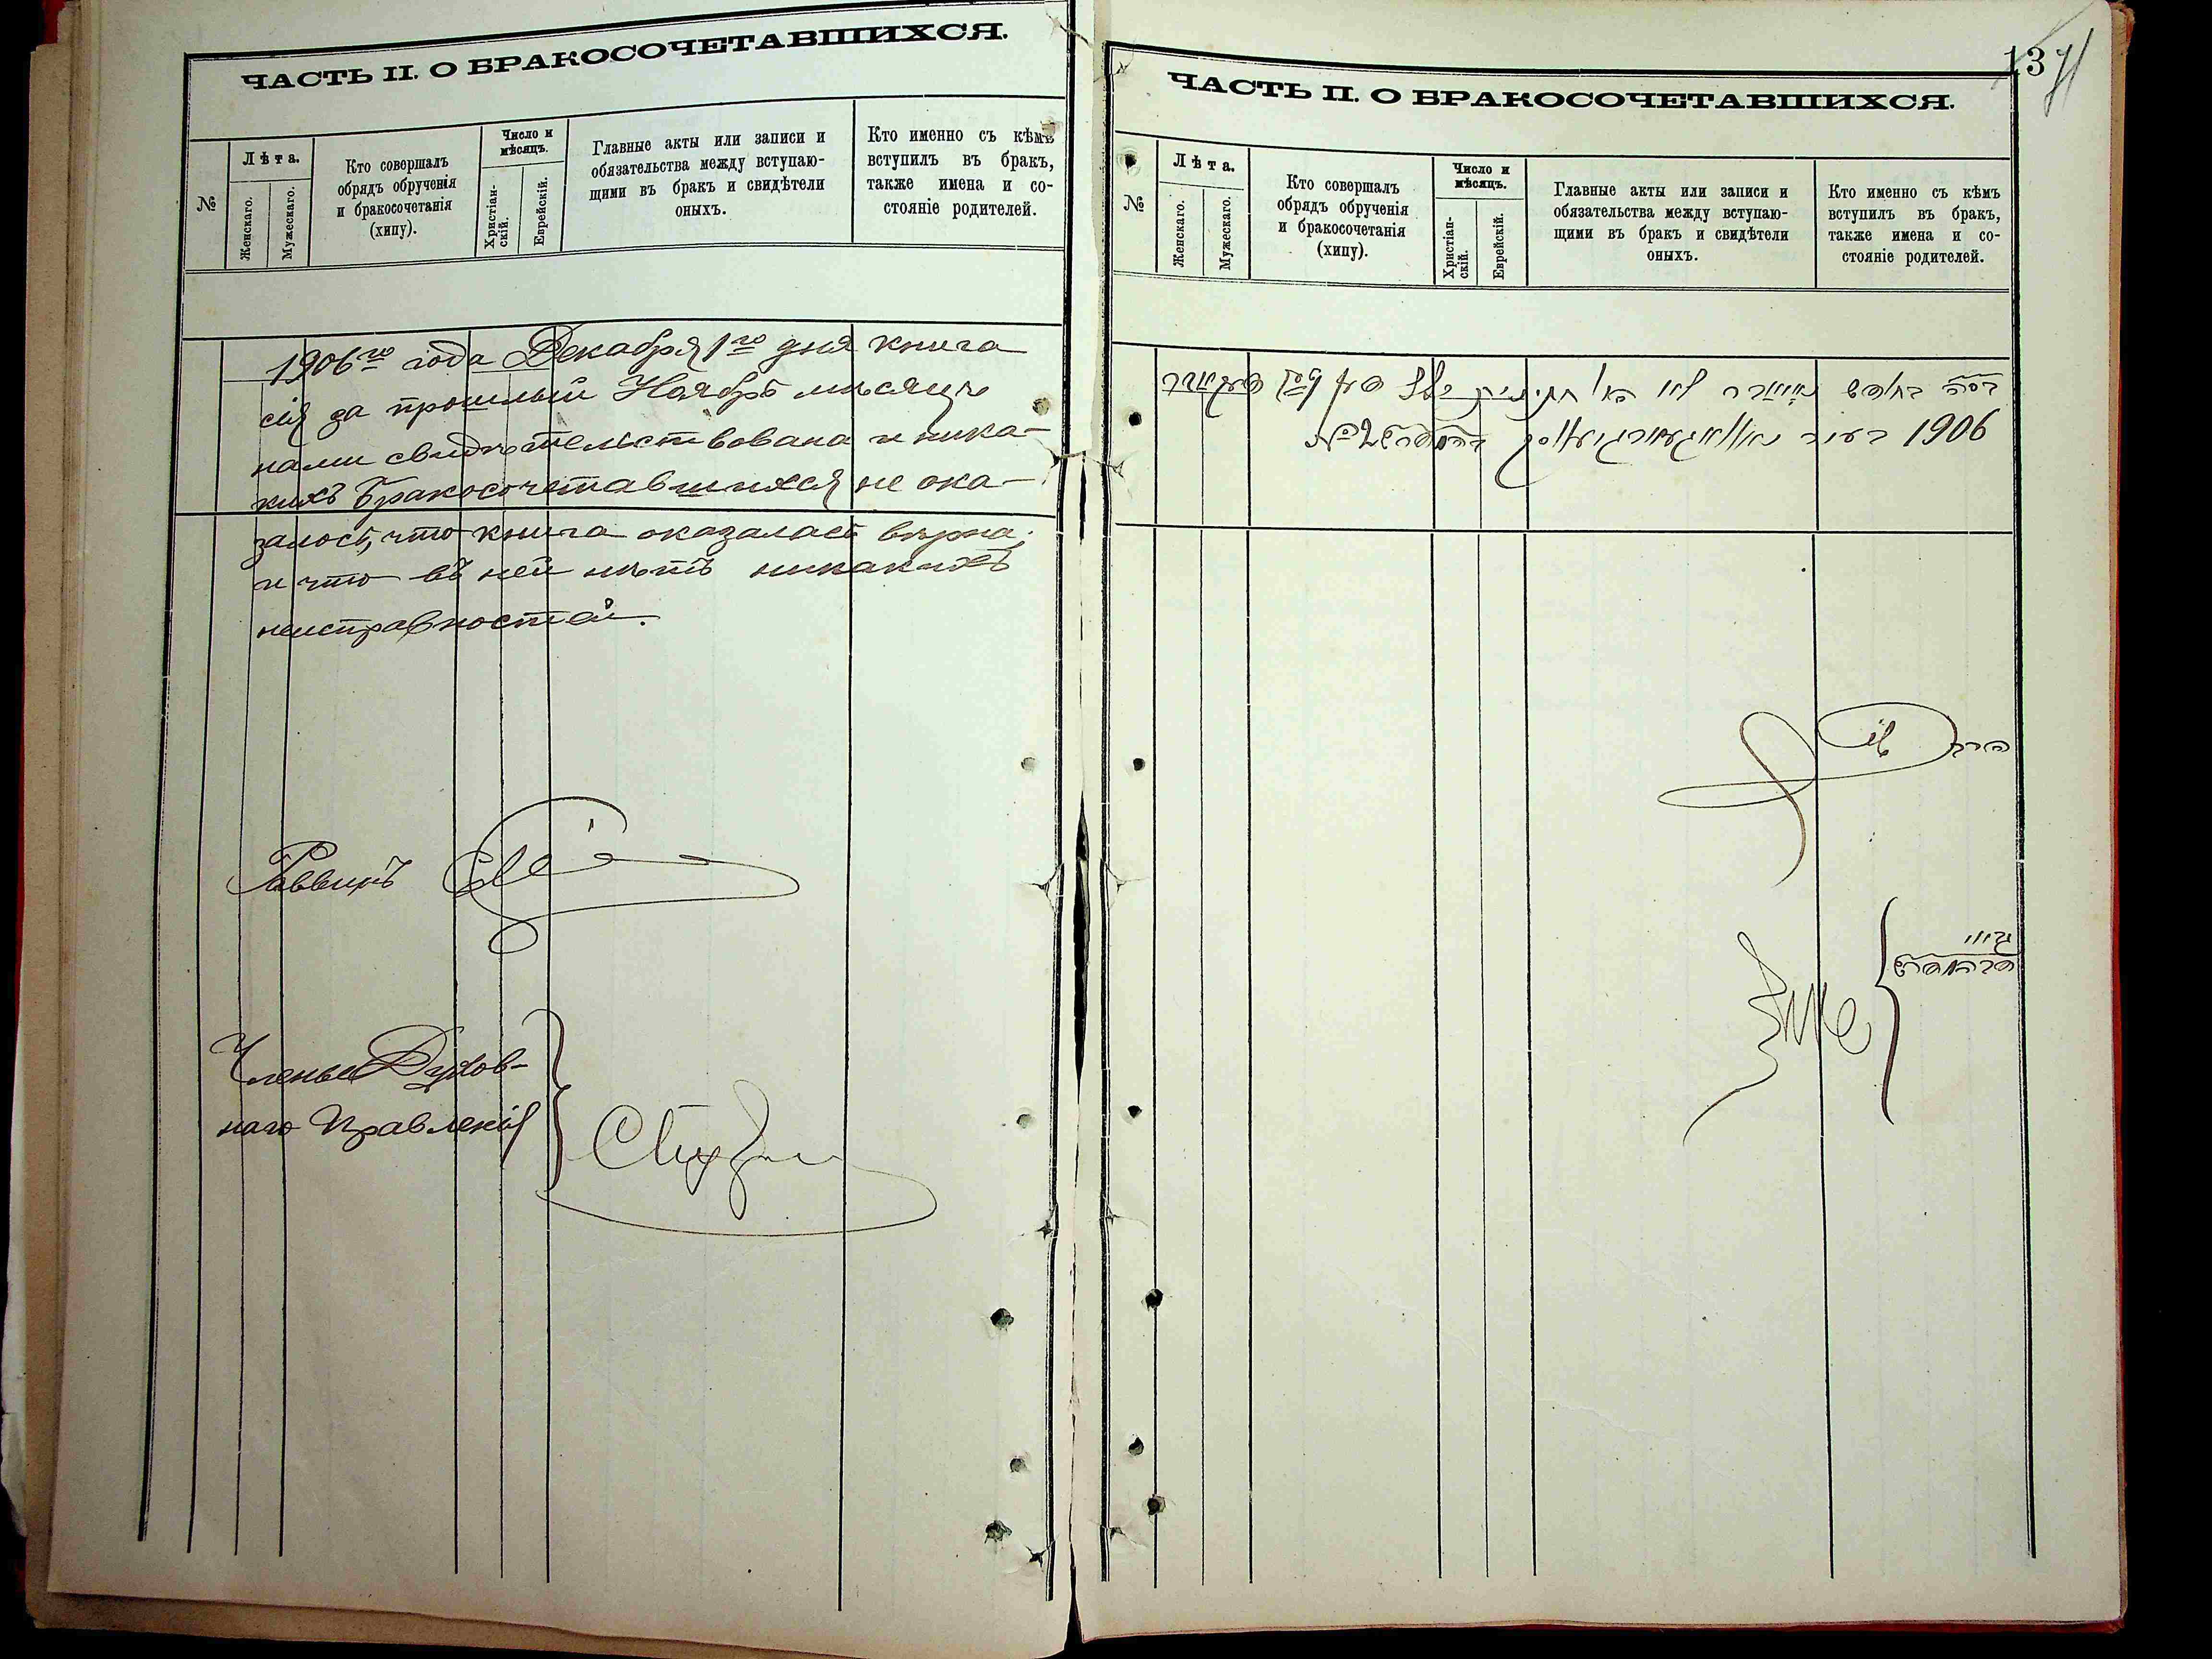 ЧАСТЬ II. О БРАКОСОЧЕТАВШИХСЯ.
№
Лѣта.
Женскаго.
Мужескаго.
Кто совершалъ
обрядъ обрученія
и бракосочетанія
(хипу).
Число и
мѣсяцъ.
Христіан-
скій.
Еврейскій.
Главные акты или записи и
обязательства между вступаю-
щими въ бракъ и свидѣтели
оныхъ.
Кто именно съ кѣмъ
вступилъ въ бракъ,
также имена и со-
стояніе родителей.
1906го года Декабря 1го дня книга
сія за прошлый Ноябрь мѣсяцъ
нами свидѣтельствована и ника-
кихъ Бракосочетавшихся не ока-
залось, что книга оказалась вѣрна,
и что въ ней нѣтъ никакихъ
неисправностей.
Раввинъ
Члены Духов-
наго Правленія
137
ЧАСТЬ II. О БРАКОСОЧЕТАВШИХСЯ.
№
Лѣта.
Женскаго.
Мужескаго.
Кто совершалъ
обрядъ обрученія
и бракосочетанія
(хипу).
Число и
мѣсяцъ.
Христіан-
скій.
Еврейскій.
Главные акты или записи и
обязательства между вступаю-
щими въ бракъ и свидѣтели
оныхъ.
Кто именно съ кѣмъ
вступилъ въ бракъ,
также имена и со-
стояніе родителей.
1906
הרב